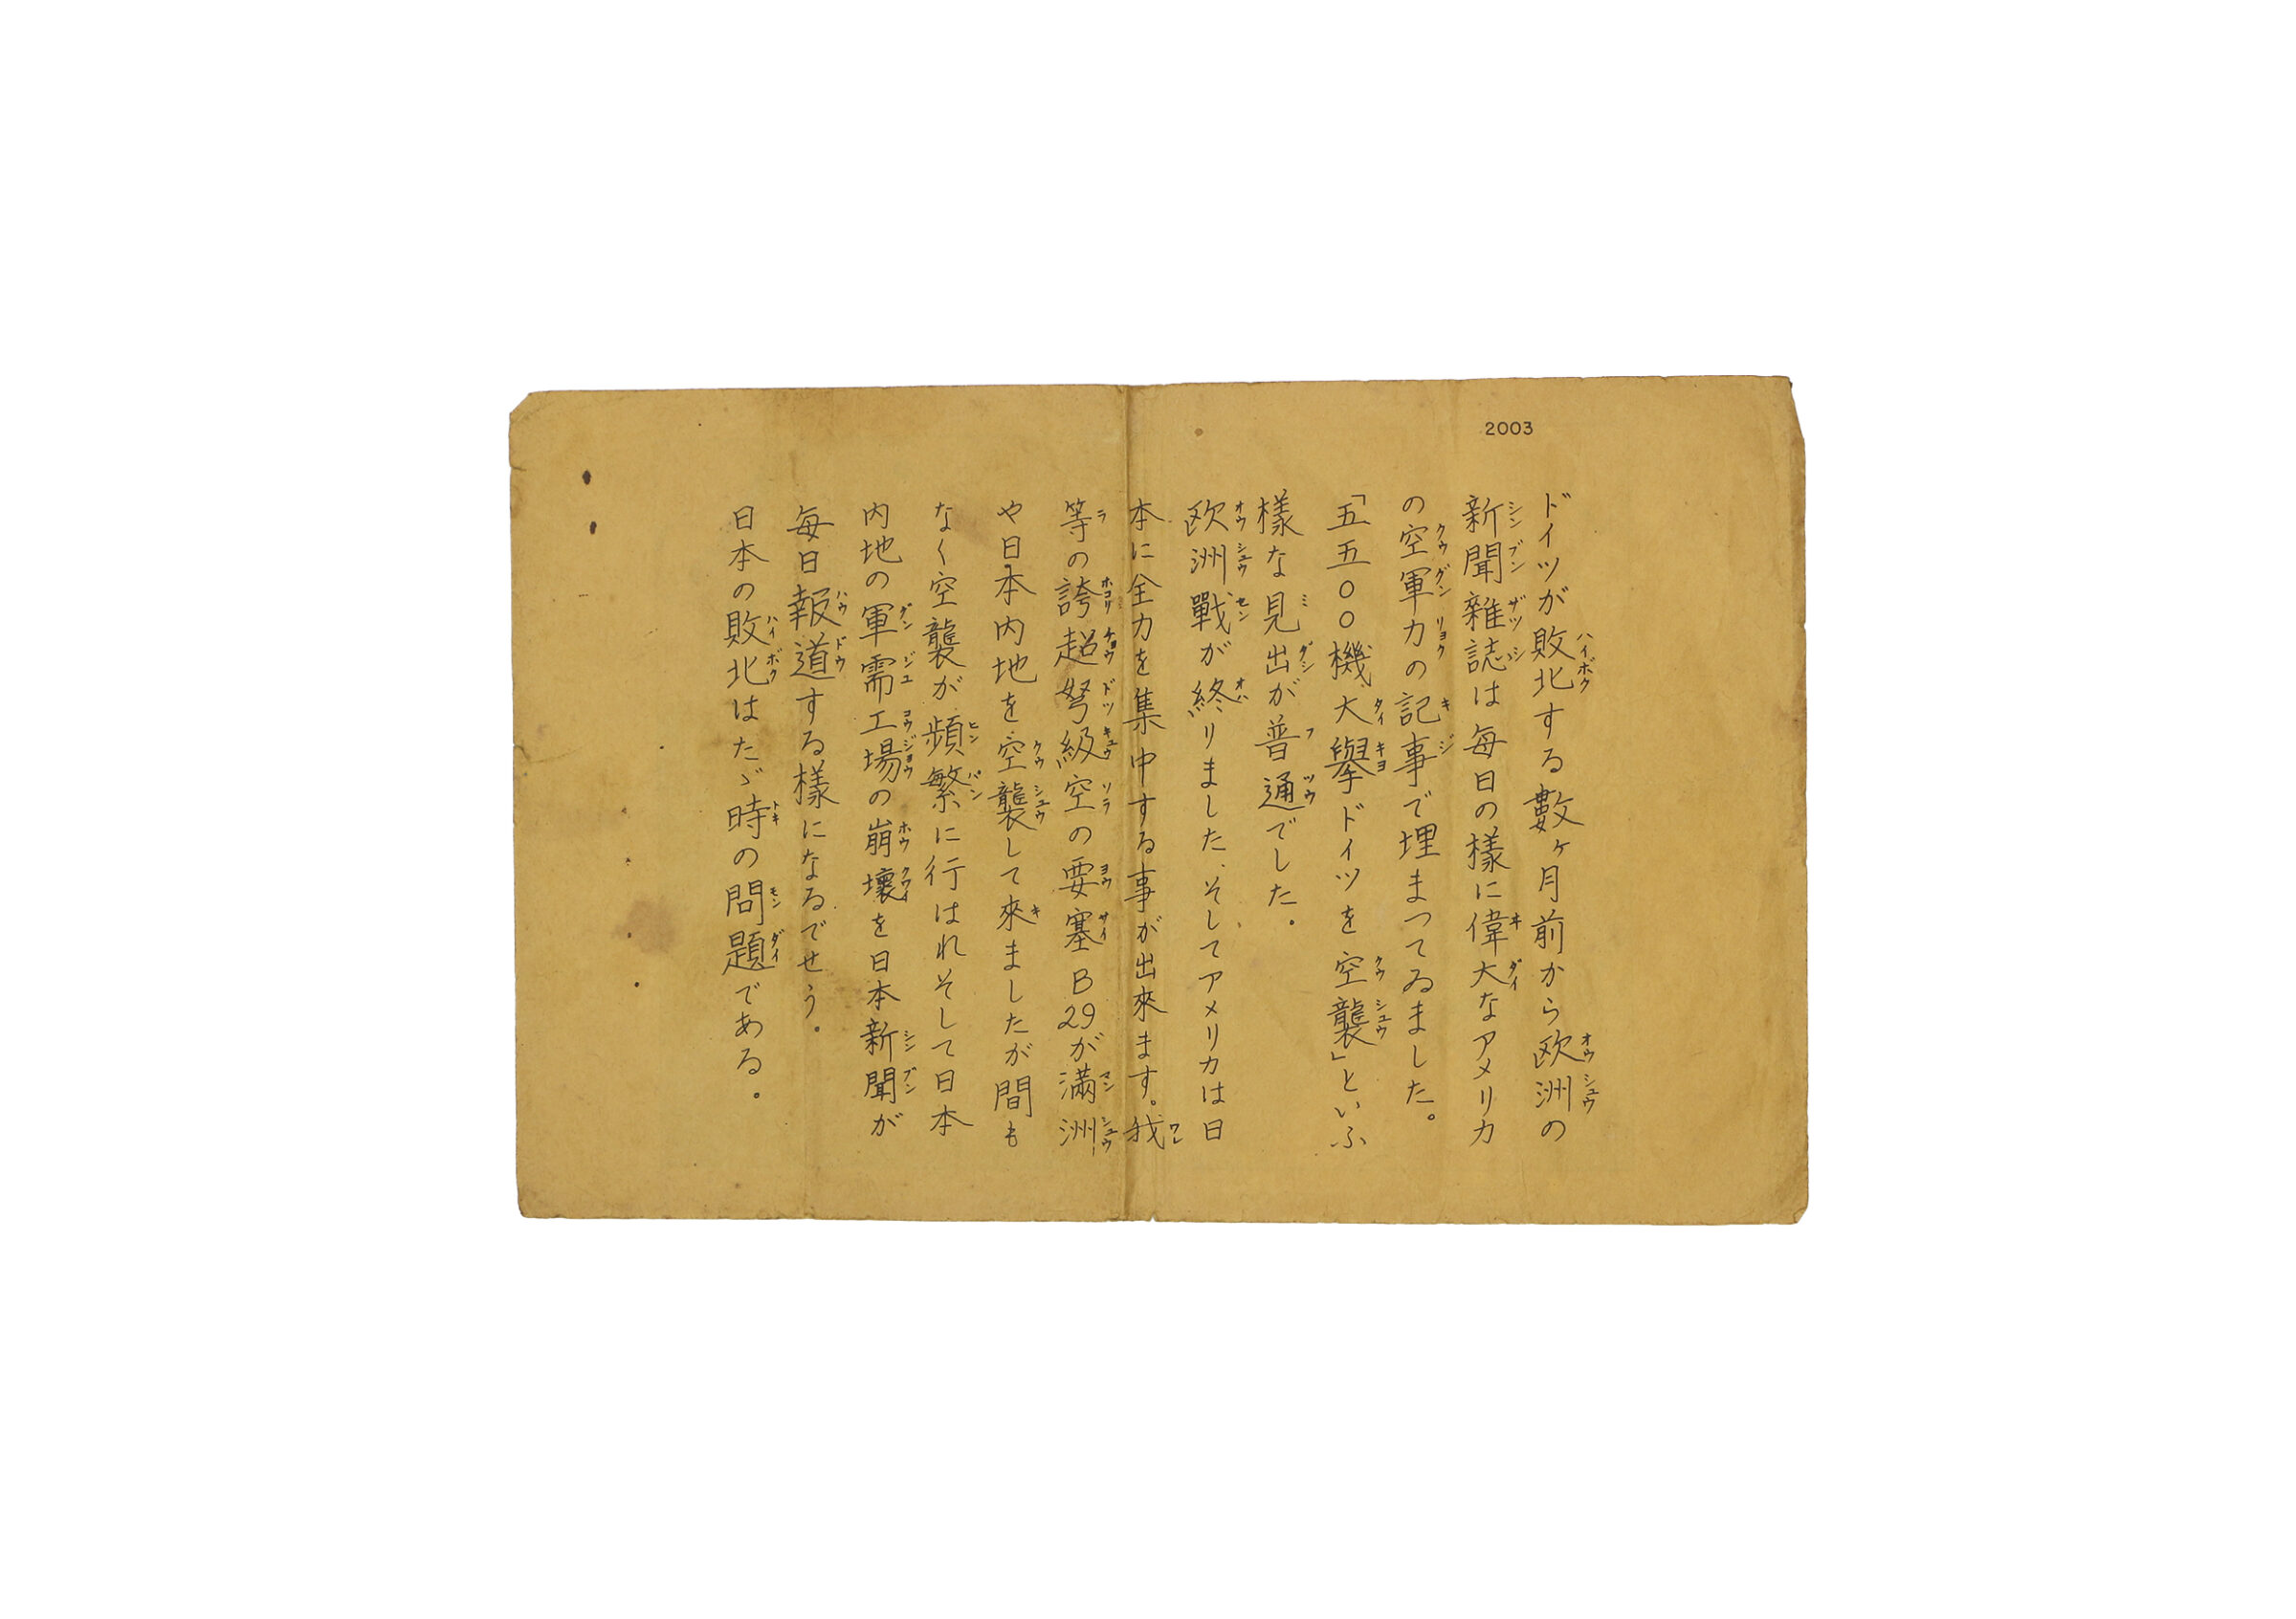 2003
ドイツが敗北する數ヶ月前から欧洲の
新聞雜誌は每日の樣に偉大なアメリカ
の空軍力の記事で埋まつてゐました。
「五五〇〇機大擧ドイツを空襲」といふ
樣な見出が普通でした。
欧洲戰が終りました、そしてアメリカは日
本に全力を集中する事が出來ます。我
等の誇超弩級空の要塞B29が滿洲
や日本内地を空襲して來ましたが間も
なく空襲が頻繁に行はれそして日本
内地の軍需工場の崩壞を日本新聞が
每日報道する樣になるでせう。
日本の敗北はたゞ時の問題である。